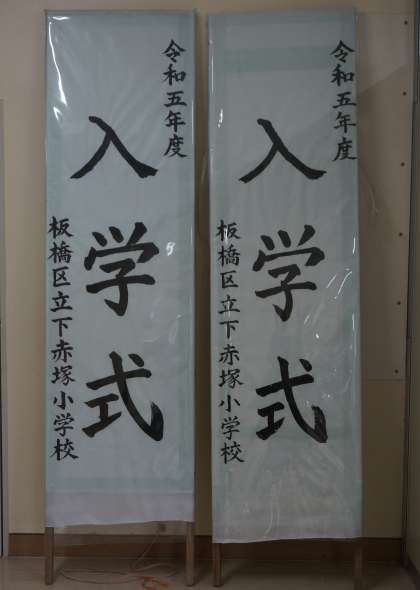 令和五年度
入学式
板橋区立下赤塚小学校
令和五年度
入学式
板橋区立下赤塚小学校